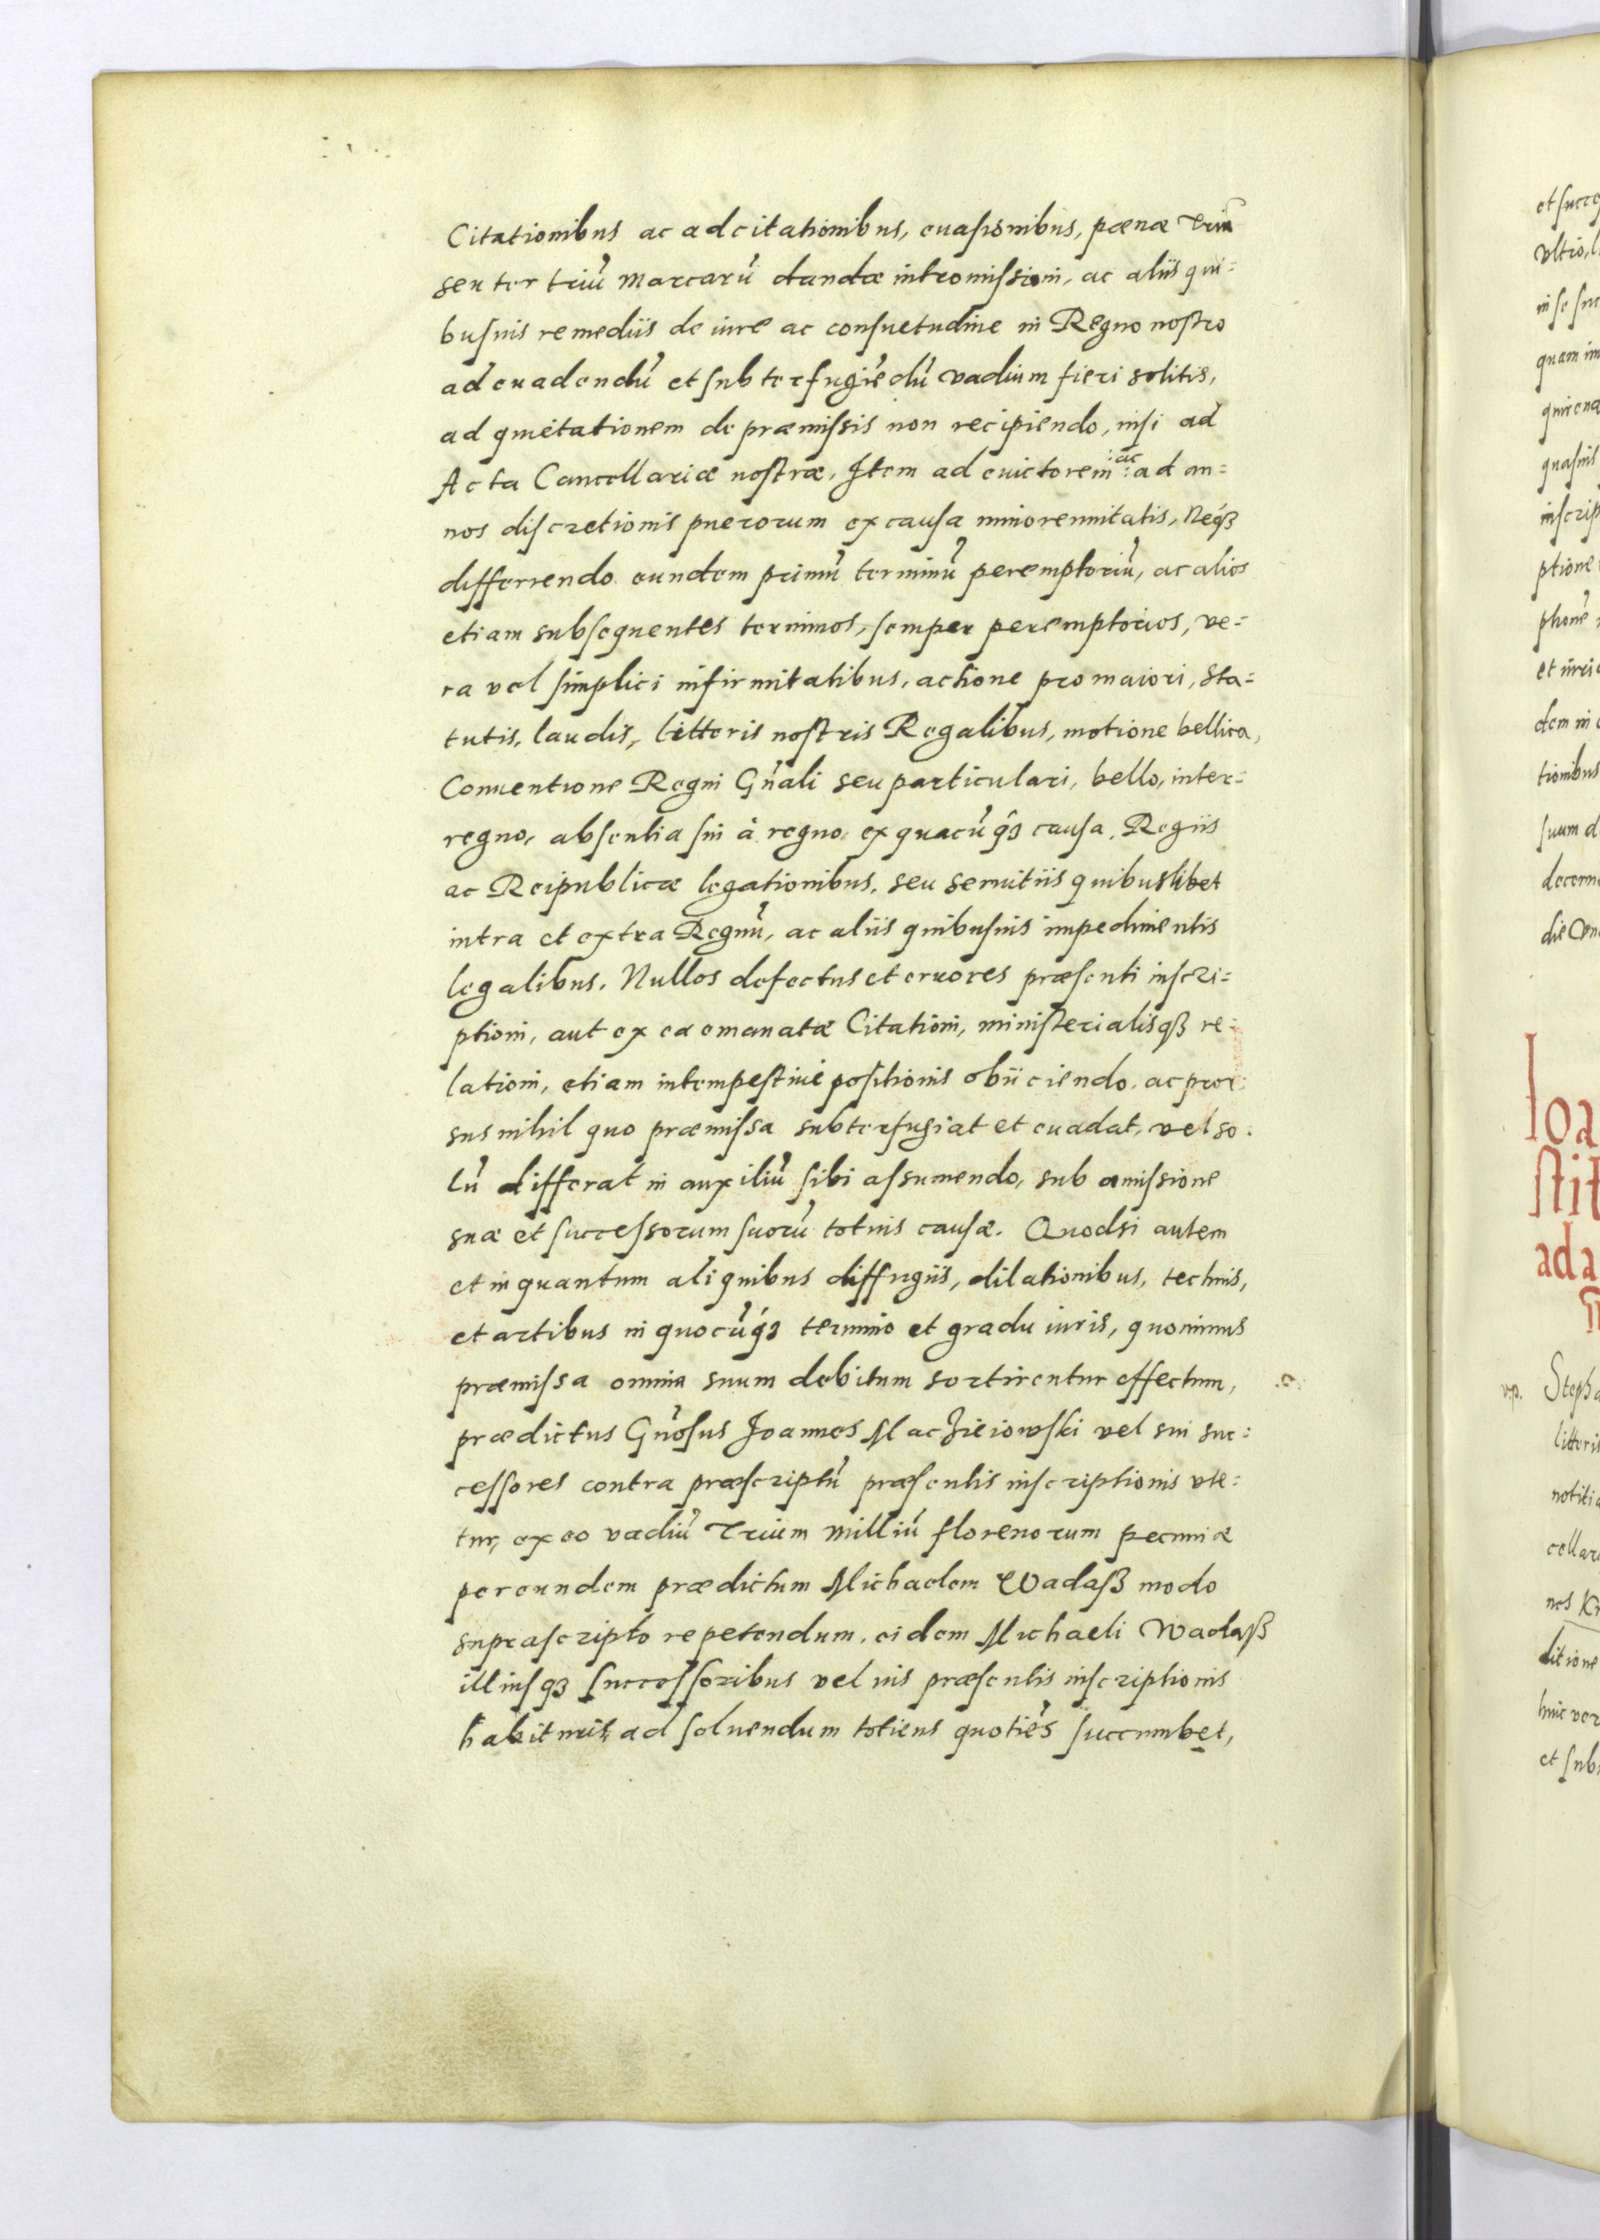 Citationibus ac adcitationibus, euasionibus, pœnæ Triũ
seu ter triũ marcarũ dandæ intromissioni, ac aliis qui=
busuis remediis de iure ac consuetudine in Regno nostro
ad euadendũ et subterfugiẽdũ vadium fieri solitis,
ad quietationem de præmissis non recipiendo, nisi ad
Acta Cancellariæ nostræ, Item ad euictorem :ac: ad an=
nos discretionis puerorum ex causa minorennitatis, Neq́ꝫ
differrendo eundem primũ terminũ peremptoriũ, ac alios
etiam subsequentes terminos, semper peremptorios, ve=
ra vel simplici infirmitatibus, actione pro maiori, Sta=
tutis, laudis, litteris nostris Regalibus, motione bellica,
Conuentione Regni Gñali seu particulari, bello, inter=
regno, absentia sui à regno ex quacũq́ꝫ causa, Regiis
ac Reipublicæ legationibus, seu seruitiis quibuslibet
intra et extra Regnũ, ac aliis quibusuis impedimentis
legalibus. Nullos defectus et errores præsenti inscri=
ptioni, aut ex ea emanatæ Citationi, ministerialisqꝫ re=
lationi, etiam intempestiuè positionis obiiciendo, ac pror=
sus nihil quo præmissa subterfugiat et euadat, vel so=
lũ differat in auxiliũ sibi assumendo, sub amissione
suæ et successorum suorũ totius causæ. Quodsi autem
et in quantum aliquibus diffugiis, dilationibus, technis,
et artibus in quocũq́ꝫ termino et gradu iuris, quominus
præmissa omnia suum debitum sortirentur effectum,
prædictus Gñosus Joannes Macżieiowski vel sui suc=
cessores contra præscriptũ præsentis inscriptionis vte=
tur, ex eo vadiũ Trium milliũ florenorum pecuniæ
per eundem prædictum Michaelem Wadaß modo
suprascripto repetendum, eidem Michaeli Wadaß
illiusqꝫ successoribus vel uis præsentis inscriptionis
habituris, ad soluendum totiens quotiẽs succumbet,
et succes
vltio, l
in se su
quam im
quirena
quasuis
inscrip
ptione
ptionẽ
et iuri
dem in
tionibus
suum d
decerne
die
Ioa
stit
ada
v.p. Stepha
litteris
notitia
cellar
nos K
ditione
huic ver
et sub